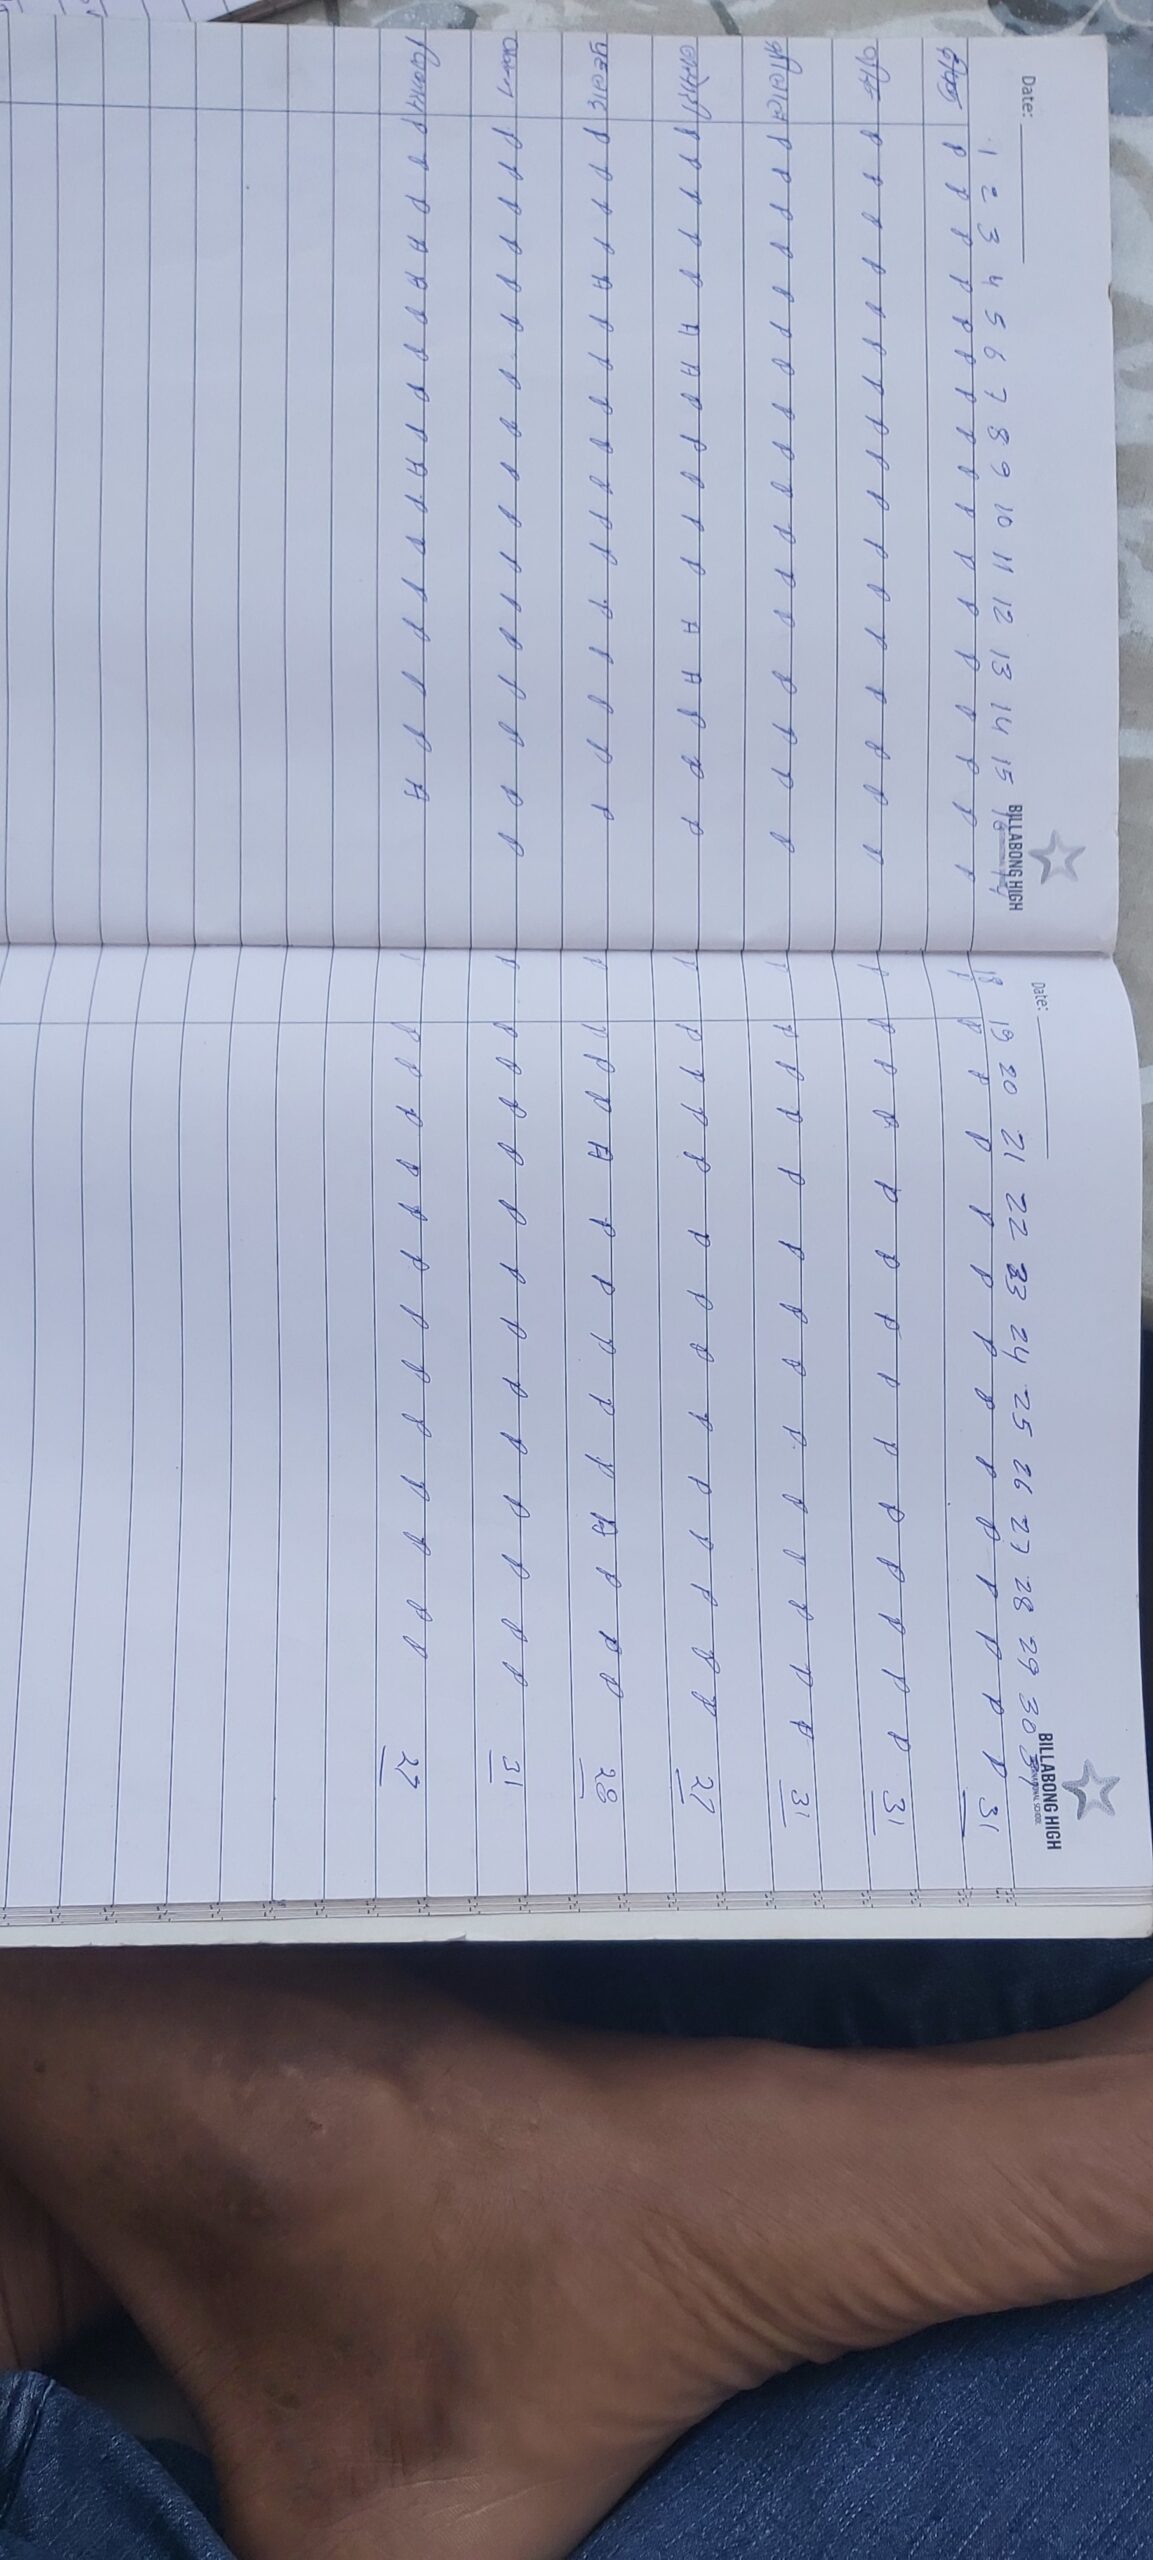 Date: Date:
BILLABONG HIGH BILLABONG HIGH
INTERNATIONAL SCHOOL
1 2 3 4 5 6 7 8 9 10 11 12 13 14 15 16 17 18 19 20 21 22 23 24 25 26 27 28 29 30 31
P P P P P P P P P P P P P P P P P P P P P P P P P P P P P P P 31
P P P P P P P P P P P P P P P P P P P P P P P P P P P P P P P 31
P P P P P P P P P P P P P P P P P P P P P P P P P P P P P P P 31
P P P P A A P P P P P A A P P P P P P P P P P P P P P P P P P 27
प्रहलाद P P P P A P P P P P P P P P P P P P P P A P P P P P A P P P 28
P P P P P P P P P P P P P P P P P P P P P P P P P P P P P P P 31
विकास P P P A A P P P P A P P P P P P A P P P P P P P P P P P P P P 27